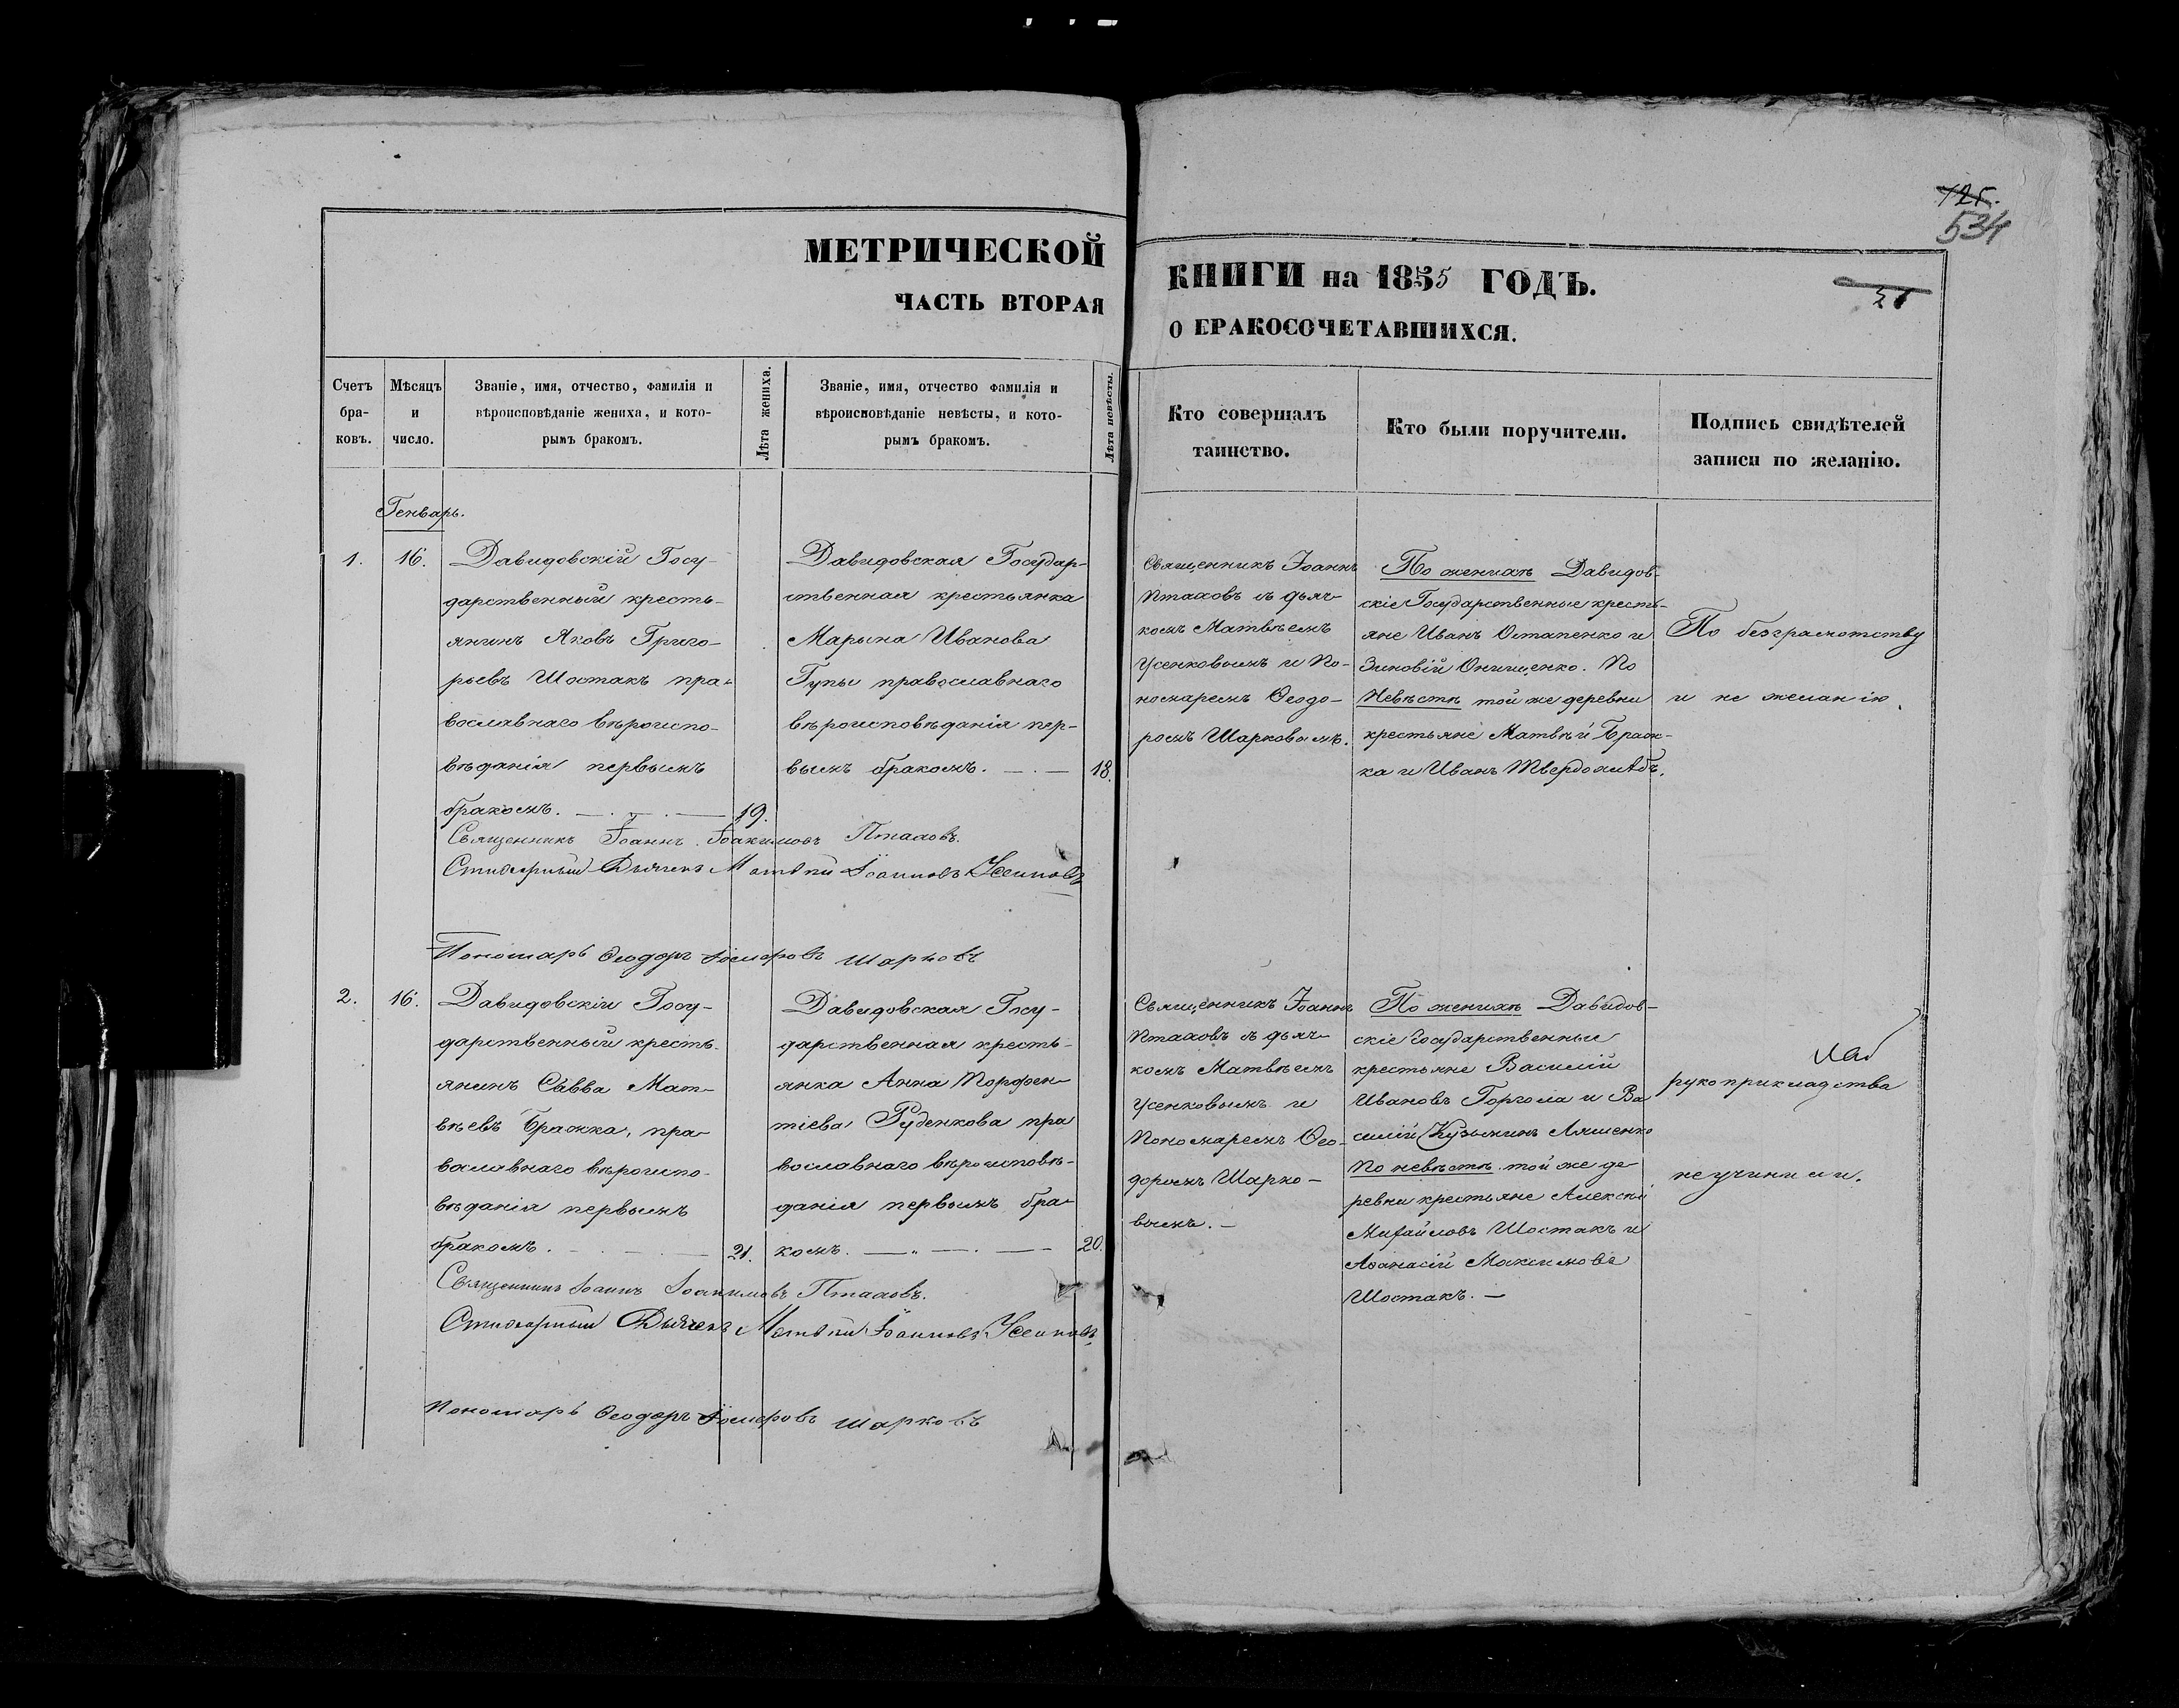 125.
534
МЕТРИЧЕСКОЙ
ЧАСТЬ ВТОРАЯ
КНИГИ на 1855 ГОДЪ.
О БРАКОСОЧЕТАВШИХСЯ.
Счетъ бра-ковъ.
Мѣсяцъ и число.
Званіе, имя, отчество, фамилія и
вѣроисповѣданіе жениха, и кото-
рымъ бракомъ.
Лѣта жениха.
Званіе, имя, отчество фамилія и
вѣроисповѣданіе невѣсты, и кото-
рымъ бракомъ.
Лѣта невѣсты.
Кто совершалъ
таинство.
Кто были поручители.
Подпись свидѣтелей
записи по желанію.
Генварь.
1.
16.
Давидовскій Госу-
дарственный кресть-
янинъ Яковъ Григо-
рьевъ Шостакъ пра-
вославнаго вѣроиспо-
вѣданія первымъ
бракомъ.
19.
Давидовская Государ-
ственная крестьянка
Марьина Иванова
Гупы православнаго
вѣроисповѣданія пер-
вымъ бракомъ.
18.
Священникъ Іоаннъ
Птаховъ съ дьяч-
комъ Матвѣемъ
Усенковымъ и По-
номаремъ Ѳеодо-
ромъ Шарковымъ.
По женихѣ Давидов-
скіе Государственные кресть-
яне Иванъ Остапенко и
Зиновій Онищенко. По
Невѣстѣ той же деревни
крестьяне Матвѣй Браж-
ка и Иванъ Твердохлѣбъ.
По безграмотству
и не желанію.
Священникъ Іоаннъ Іоакимовъ Птаховъ.
Стихарный Дьячекъ Матѳѣй Іоанновъ Усенковъ
Пономарь Ѳеодоръ Шарковъ
2.
16.
Давидовскій Госу-
дарственный кресть-
янинъ Савва Мат-
вѣевъ Бражка, пра-
вославнаго вѣроиспо-
вѣданія первымъ
бракомъ.
21.
Давидовская Госу-
дарственная кресть-
янка Анна Порфен-
тіева Руденкова пра
вославнаго вѣроисповѣ-
данія первымъ бра-
комъ.
20.
Священникъ Іоаннъ
Птаховъ съ дьяч-
комъ Матвѣемъ
Усенковымъ и
Пономаремъ Ѳео-
доромъ Шарко-
вымъ.
По женихѣ Давидов-
скіе Государственные
крестьяне Василій
Ивановъ Горгола и Ва
силій Кузьминъ Ляшенко
По невѣстѣ той же де
ревни крестьяне Алексѣй
Михайловъ Шостакъ и
Аѳанасій Максимовъ
Шостакъ.
рукоприкладства
не учинили.
Священникъ Іоаннъ Іоакимовъ Птаховъ.
Стихарный Дьячекъ Матѳѣй Іоанновъ Усенковъ
Пономарь Ѳеодоръ Шарковъ